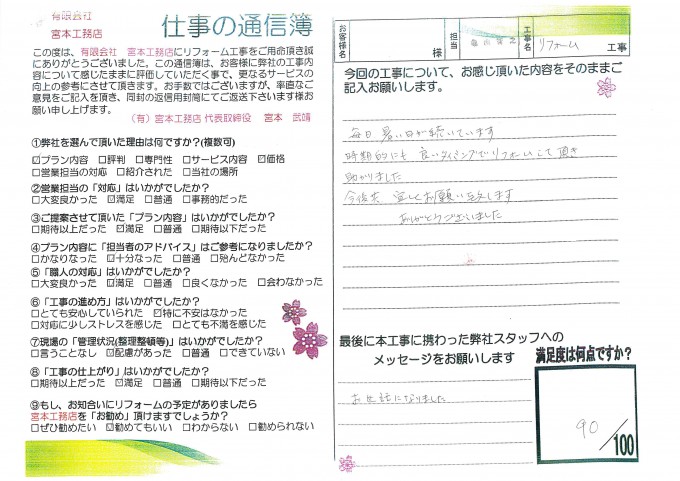 有限会社
宮本工務店
仕事の通信簿
この度は、有限会社 宮本工務店にリフォーム工事をご用命頂き誠
にありがとうございました。この通信簿は、お客様に弊社の工事内
容について感じたままに評価していただく事で、更なるサービスの
向上の参考にさせて頂きます。お手数ではございますが、率直なご
意見をご記入を頂き、同封の返信用封筒にてご返送下さいます様お
願い申し上げます。
(有)宮本工務店 代表取締役 宮本 武靖
①弊社を選んで頂いた理由は何ですか?(複数可)
☑プラン内容 □評判 □専門性 □サービス内容 ☑価格
□営業担当の対応 □紹介された □当社の場所
②営業担当の「対応」はいかがでしたか?
□大変良かった ☑満足 □普通 □事務的だった
③ご提案させて頂いた「プラン内容」はいかがでしたか?
□期待以上だった ☑満足 □普通 □期待以下だった
④プラン内容に「担当者のアドバイス」はご参考になりましたか?
□かなりなった ☑十分なった □普通 □殆んどなかった
⑤「職人の対応」はいかがでしたか?
□大変良かった ☑満足 □普通 □良くなかった □会わなかった
⑥「工事の進め方」はいかがでしたか?
□とても安心していられた ☑特に不安はなかった
□対応に少しストレスを感じた □とても不満を感じた
⑦現場の「管理状況(整理整頓等)」はいかがでしたか?
□言うことなし ☑配慮があった □普通 □できていない
⑧「工事の仕上がり」はいかがでしたか?
□期待以上だった ☑満足 □普通 □期待以下だった
⑨もし、お知合いにリフォームの予定がありましたら
宮本工務店を「お勧め」頂けますでしょうか?
□ぜひ勧めたい ☑勧めてもいい □わからない □勧められない
お客様名 様 担当 工事名 リフォーム 工事
今回の工事について、お感じ頂いた内容をそのままご
記入お願いします。
毎日暑い日が続いています
時期的にも良いタイミングでリフォームして頂き
助かりました
今後共 宜しくお願い致します
ありがとうございました
最後に本工事に携わった弊社スタッフへの
メッセージをお願いします
お世話になりました
満足度は何点ですか?
90/100